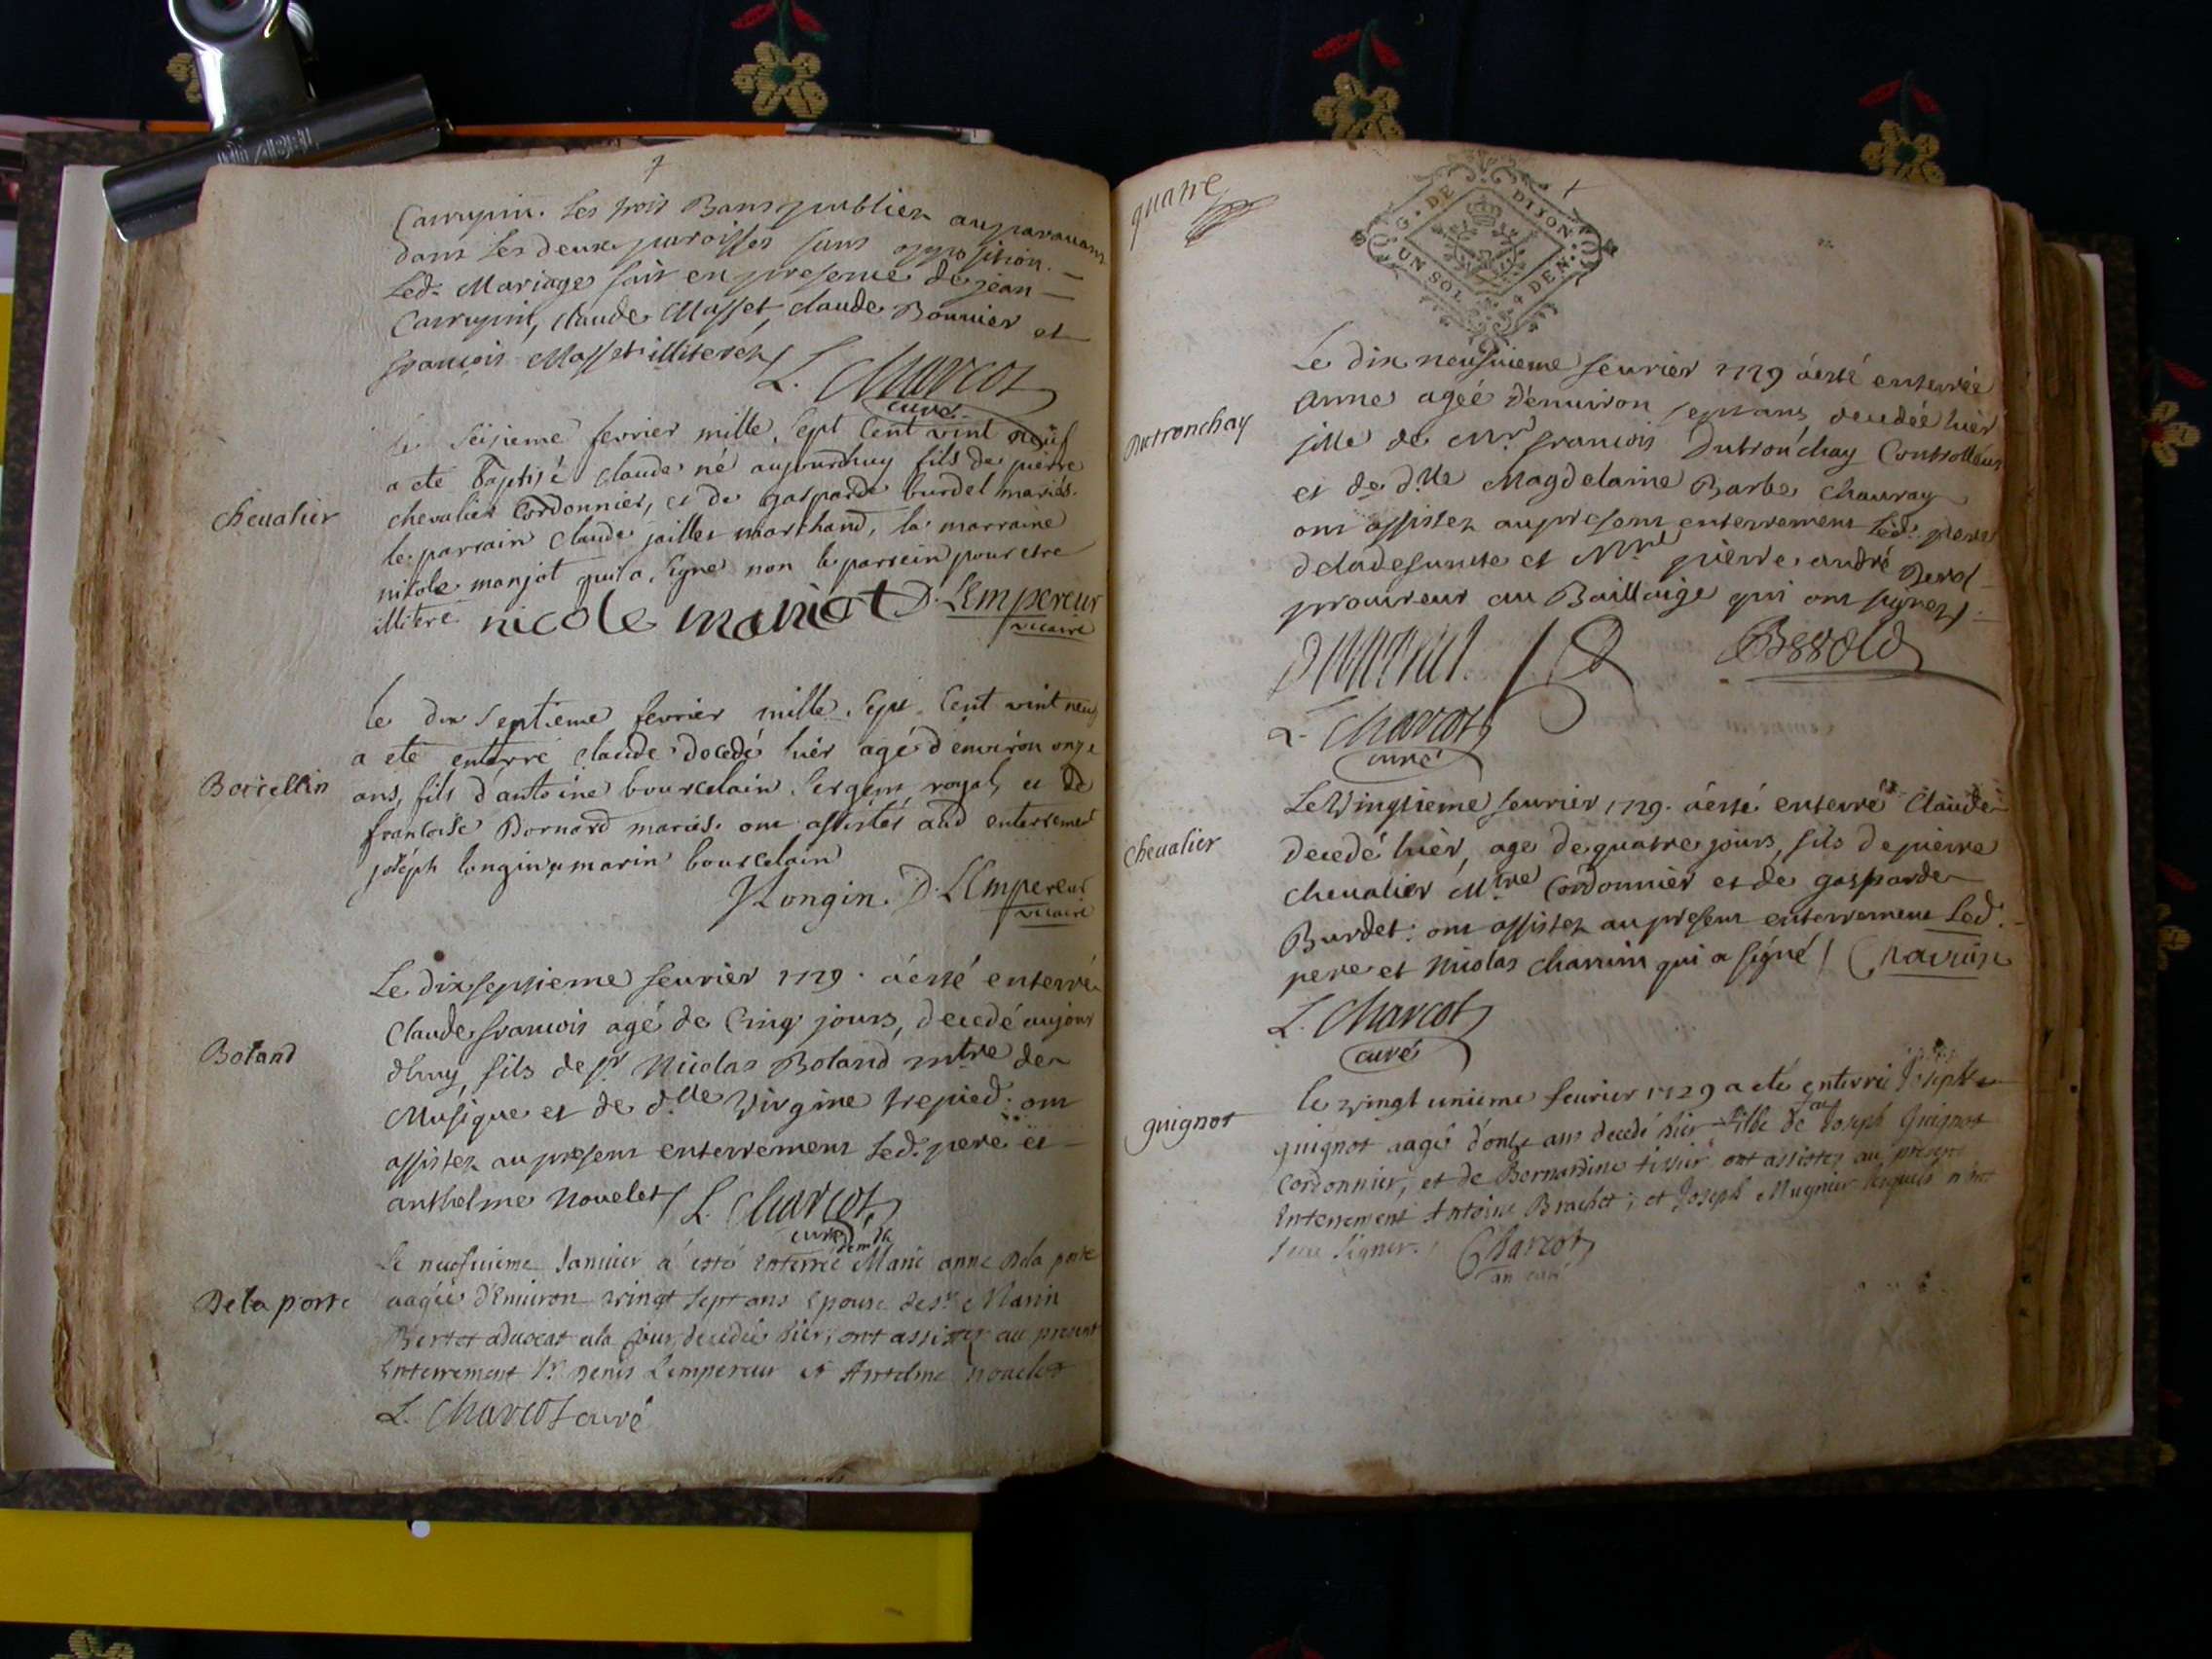 Carrypin. Les trois Bans publiez auparavant
dans les deux paroisses sans opposition.
Led. Mariage fait en presence de jean
Carrypin, claude Masset, claude Bonnier et
françois Masset illiterez
L. Charcot
curé
Chevalier
le seisieme fevrier mille sept cent vint neuf
a eté Baptisé claude né aujourdhuy fils de pierre
chevalier Cordonnier, et de gasparde burdet mariés.
le parrain claude jaillet marchand, la marraine
nicole manjot qui a signé non le parrein pour etre
illitere
nicole maniot D. LEmpereur
vicaire
Borcellin
le dix septieme fevrier mille sept cent vint neuf
a eté enterré claude decedé hiér agé d'environ onze
ans, fils d'antoine bourcelain sergent royal, et de
francoise Bornard mariés. ont assistés aud enterrement
joseph longin, marin bourcelain
JLongin. D. LEmpereur
vicaire
Boland
Le dix septieme fevrier 1729. á esté enterré
Claude francois agé de Cinq jours, decedé aujour
dhuy, fils de sr Nicolas Boland mtre de
Musique et de dlle Virgine trepied: ont
assistez au present enterrement led. pere et
anthelme Nouelet L. Charcot
curé
De la porte
Le neufvieme Janvier á esté enterrée demlle Marie anne Dela porte
aagée d'environ vingt sept ans Epouse de sr Marin
Bertet advocat a la Cour, decedée hier, ont assistez au present
Enterrement Mr Denis Lempereur et Antelme Nouelet
L. Charcot curé
quatre
G. DE DIJON
UN SOL 4 DEN.
Dutronchay
Le dix neufvieme fevrier 1729 á esté enterrée
Anne agée d'environ sept ans, decedée hiér
fille de Mr francois Dutronchay Controlleur
et de dlle Magdelaine Barbe Chauray
ont assistez au present enterrement led. pere
de la defunte et Mre pierre andré Berod
procureur au Bailliage qui ont signez
L. Charcot
curé
Chevalier
Le Vingtieme fevrier 1729. á esté enterré Claude
decedé hiér, age de quatre jours, fils de pierre
Chevalier Mtre Cordonnier et de gasparde
Burdet: ont assistez au present enterrement Led.
pere et Nicolas Charvin qui a signé Charvin
L. Charcot
curé
guignot
le vingt unieme fevrier 1729 a eté enterré Joseph
guignot aagé d'onze ans decedé hier fils de Joseph Guignot
Cordonnier, et de Bernardine tissier ont assistez au present
Enterrement Antoine Brachet; et Joseph Mugnier lesquels n'ont
sceu signer. Charcot
an curé